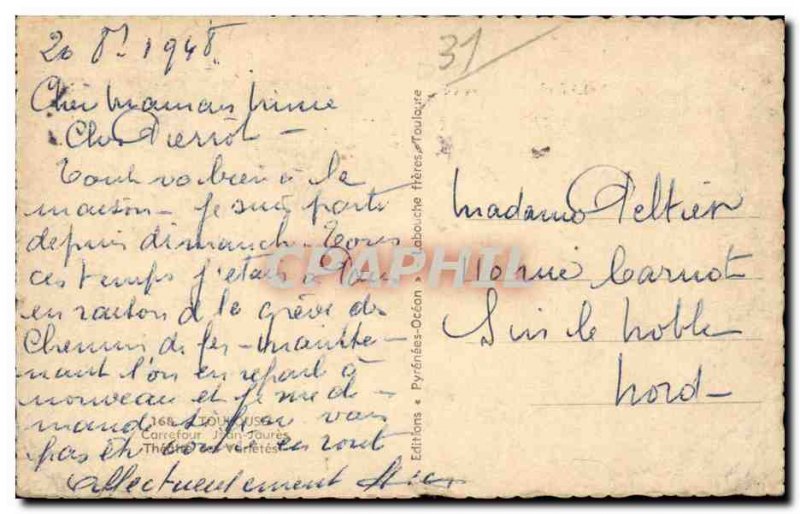 20 8bre 1948
Cher Maman Mimie
Cher Pierrot –
Tout va bien à la
maison – je suis parti
depuis dimanche. Tous
ces temps j'étais à
en raison de la grève des
Chemins de fer – mainte-
nant l'on en reparle à
nouveau et je me de-
mande si l'on va
pas être en route
affectueusement
31
Madame Peltier
10 rue Carnot
Sin le Noble
Nord –
168 TOULOUSE
Carrefour Jean-Jaurès
Théâtre des Variétés
Editions « Pyrénées-Océan » Labouche frères, Toulouse
CPAPHIL.COM